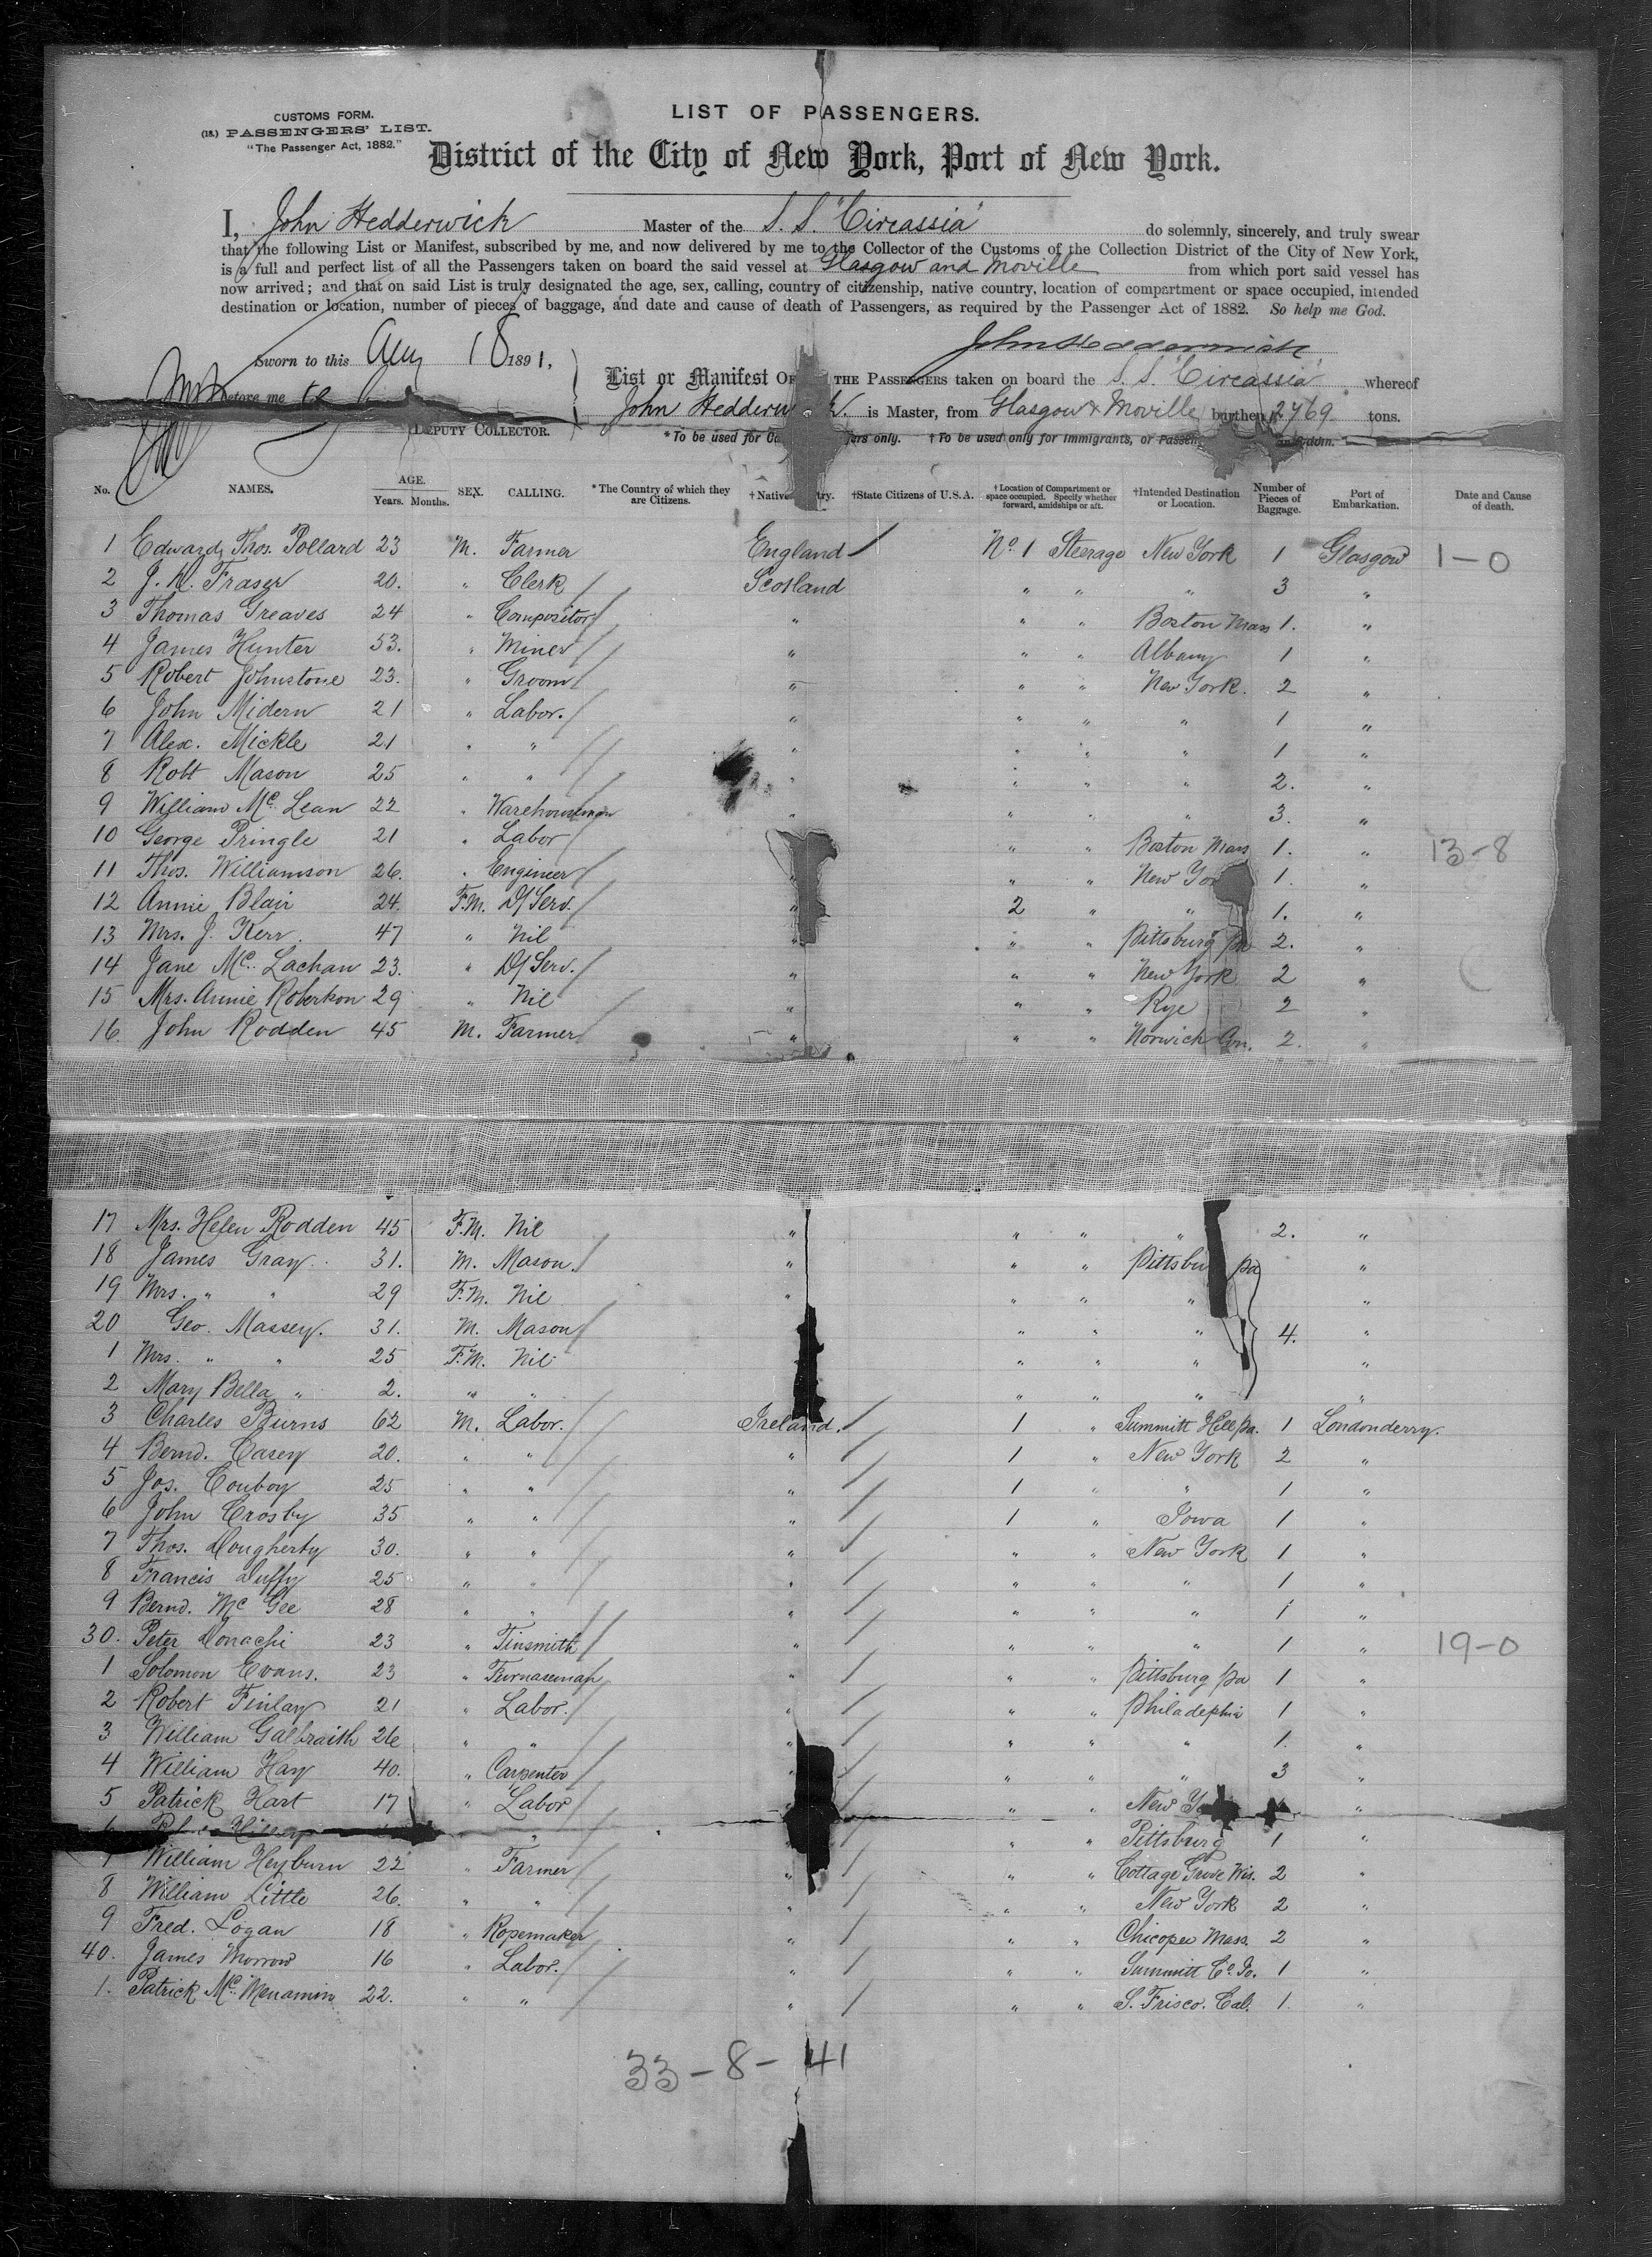 CUSTOMS FORM.
(18.) PASSENGERS' LIST.
"The Passenger Act, 1882."
LIST OF PASSENGERS.
District of the City of New York, Port of New York.
I, John Hedderwick Master of the S.S. "Circassia" do solemnly, sincerely, and truly swear
that the following List or Manifest, subscribed by me, and now delivered by me to the Collector of the Customs of the Collection District of the City of New York,
is a full and perfect list of all the Passengers taken on board the said vessel at Glasgow and Moville from which port said vessel has
now arrived; and that on said List is truly designated the age, sex, calling, country of citizenship, native country, location of compartment or space occupied, intended
destination or location, number of pieces of baggage, and date and cause of death of Passengers, as required by the Passenger Act of 1882. So help me God.
John Hedderwick
Sworn to this Aug 18 1891,
before me
DEPUTY COLLECTOR.
List or Manifest OF THE PASSENGERS taken on board the S.S. Circassia whereof
John Hedderwick. is Master, from Glasgow & Moville burthen 2769 tons.
*To be used for only. †To be used only for Immigrants, or
No. NAMES. AGE. Years. Months. SEX. CALLING. *The Country of which they are Citizens. †Native †State Citizens of U.S.A. †Location of Compartment or space occupied. Specify whether forward, amidships or aft. †Intended Destination or Location. Number of Pieces of Baggage. Port of Embarkation. Date and Cause of death.
1 Edward Thos. Pollard 23 M. Farmer England / No. 1 Steerage New York 1 Glasgow 1-0
2 J. K. Fraser 20. " Clerk / Scotland " " " 3 "
3 Thomas Greaves 24 " Compositor / " " " Boston Mass 1. "
4 James Hunter 53. " Miner / " " " Albany 1 "
5 Robert Johnstone 23. " Groom / " " " New York. 2 "
6 John Midern 21 " Labor. / " " " " 1 "
7 Alex. Mickle 21 " " / " " " " 1 "
8 Robt Mason 25 " " / " " " " 2. "
9 William Mc Lean 22 " Warehouseman " " " " 3. "
10 George Pringle 21 " Labor / " " Boston Mass 1. " 13-8
11 Thos. Williamson 26. " Engineer / " " " New Yor 1. "
12 Annie Blair 24. F.M. D/Serv. / " 2 " " 1. "
13 Mrs. J. Kerr. 47 " Nil " " " Pittsburg Pa 2. "
14 Jane Mc Lachan 23. " D/Serv. / " " " New York 2 "
15 Mrs. Annie Robertson 29 " Nil " " " Rye 2 "
16 John Rodden 45 M. Farmer / " " " Norwich Con. 2. "
17 Mrs. Helen Rodden 45 F.M. Nil " " " " 2. "
18 James Gray. 31. M. Mason. / " " " Pittsbu Pa "
19 Mrs. " " 29 F.M. Nil " " " " "
20 Geo. Massey. 31. M. Mason / " " " 4. "
1 Mrs. " " 25 F.M. Nil " " " "
2 Mary Bella " 2. " " " " " "
3 Charles Burns 62 M. Labor. / Ireland. / 1 " Summitt Hill Pa. 1 Londonderry.
4 Bernd. Casey 20. " " / " / 1 " New York 2 "
5 Jos. Conboy 25 " " / " / 1 " " 1 "
6 John Crosby 35 " " / " / 1 " Iowa 1 "
7 Thos. Dougherty 30. " " / " / " " New York 1 "
8 Francis Duffy 25 " " / " / " " " 1 "
9 Bernd. Mc Gee 28 " " / " / " " " 1 "
30. Peter Donachi 23 " Tinsmith / " / " " " 1 " 19-0
1 Solomon Evans. 23 " Furnaceman " / " " Pittsburg Pa 1 "
2 Robert Finlay 21 " Labor. / " / " " Philadephia 1 "
3 William Galbraith 26 " " / " / " " " 1. "
4 William Hay 40. " Carpenter / " / " " " 3 "
5 Patrick Hart 17 " Labor / " / " " New "
6 " " / " " Pittsburg 1 "
7 William Heyburn 22 " Farmer / " / " " Cottage Grove Wis. 2 "
8 William Little 26. " " / " / " " New York 2 "
9 Fred. Logan 18 " Ropemaker " / " " Chicopee Mass. 2 "
40. James Morrow 16 " Labor. / " / " " Summitt Co. Io. 1 "
1. Patrick Mc Menamin 22. " " / " / " " S. Frisco. Cal. 1. "
33-8-41